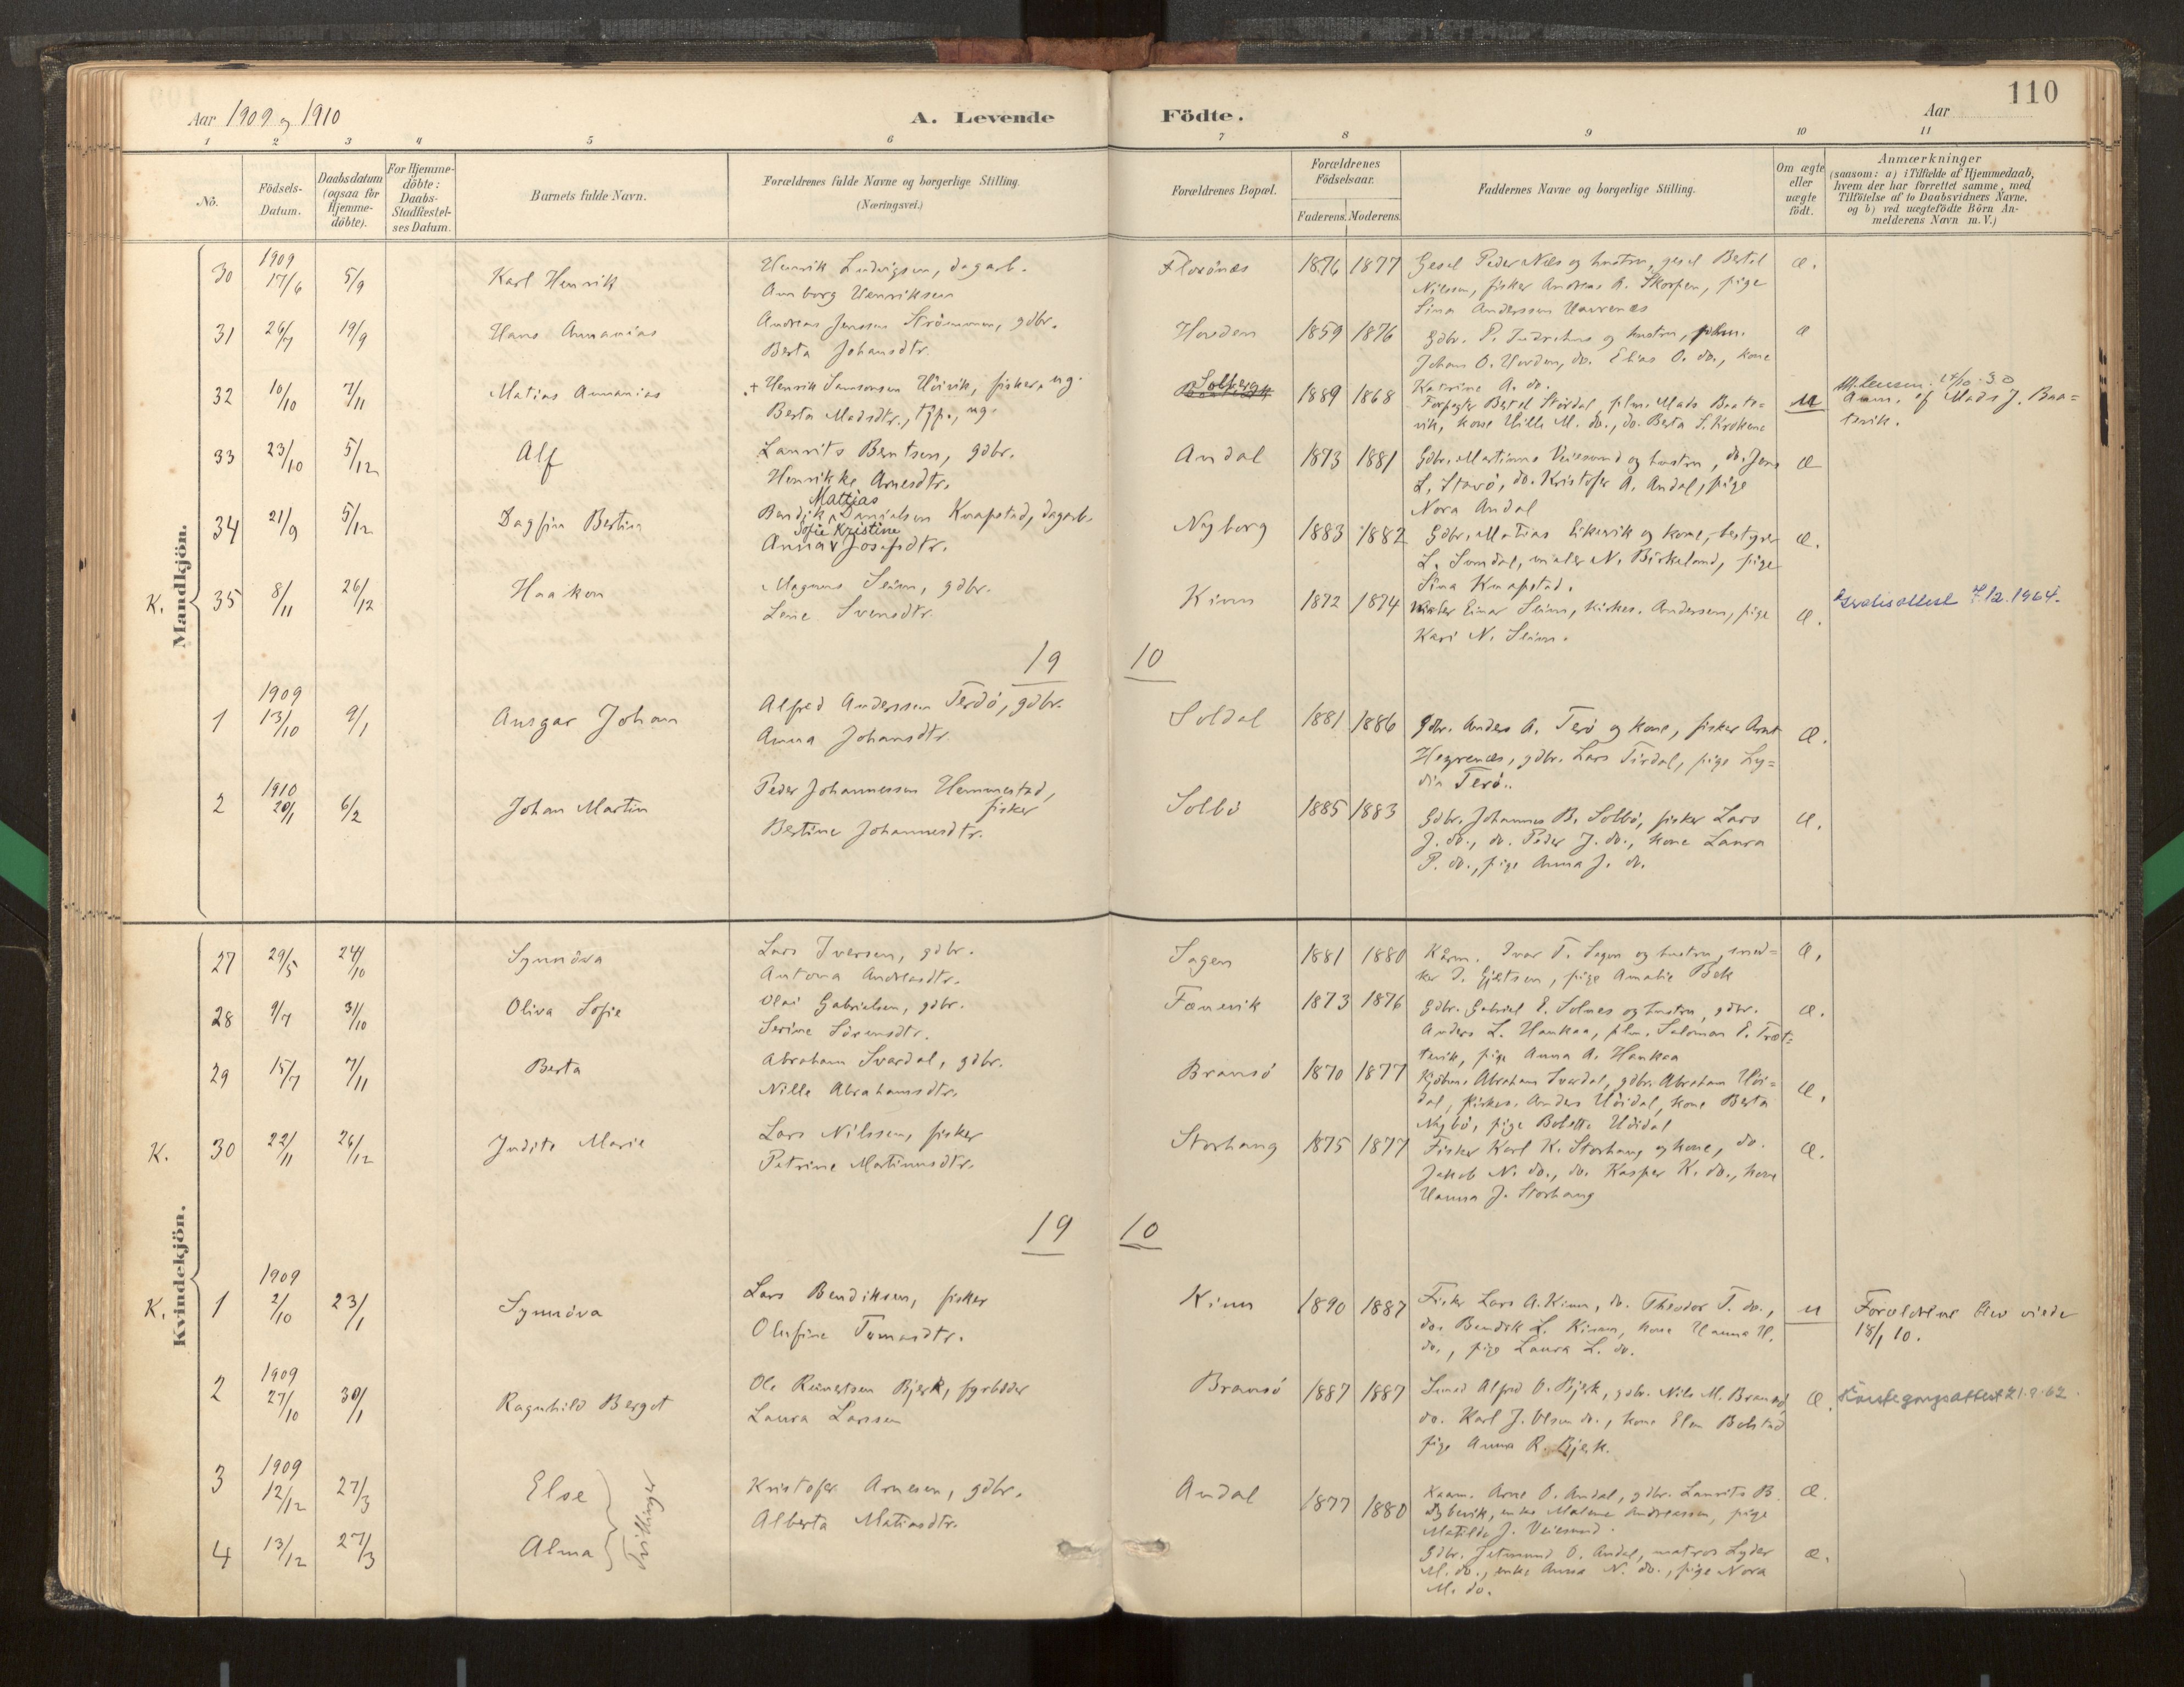 110
Aar 1909 og 1910
A. Levende Födte.
Aar
1 2 3 4 5 6 7 8 9 10 11
No.
Födsels-Datum.
Daabsdatum (ogsaa for Hjemme-döbte).
For Hjemme-döbte: Daabs-Stadfæstel-ses Datum.
Barnets fulde Navn.
Forældrenes fulde Navne og borgerlige Stilling.
(Næringsvei.)
Forældrenes Bopæl.
Forældrenes Födselsaar.
Faderens. Moderens.
Faddernes Navne og borgerlige Stilling.
Om ægte eller uægte født.
Anmærkninger
(saasom: a) i Tilfælde af Hjemmedaab,
hvem der har forrettet samme, med
Tilföielse af to Daabsvidners Navne,
og b) ved uægtefödte Börn An-
melderens Navn m. V.)
Mandkjön.
30 1909 17/6 5/9 Karl Henrik
Henrik Ludvigsen, dagarb.
Amborg Henriksen
Florönæs 1876 1877
Gesel Peder Næs og hustru, gesel Bertel
Nilsen, fisker Andreas A. Skorpen, pige
Lina Anderssen Havrenæs
æ.
31 26/7 19/9 Hans Annanias
Andreas Jenssen Strömmen, gdbr.
Berta Johansdtr.
Hovden 1859 1876
Gdbr. P. Indrehus og hustru,
Johan O. Hovden, do. Elias O. do., kone
Katrine A. do.
æ
32 10/10 7/11 Matias Annanias
+ Henrik Samsonsen Hövik, fisker, ug.
Berta Madsdtr., tjp., ug.
Solberg 1889 1868
Forpagter Bertel Stördal, plm. Mads Baats-
vik, kone Nille M. do., do. Berta S. Krokene
u
Anm. af Mads J. Baa=
tsvik.
33 23/10 5/12 Alf
Laurits Berntsen, gdbr.
Henrikke Arnesdtr.
Andal 1873 1881
Gdbr. Martinus Veiesund og hustru, do. Jens
L. Stavö, do. Kristofer A. Andal, pige
Nora Andal
æ
34 21/9 5/12 Dagfin Bertin
Mattias
Bendik Danielsen Knapstad, dagarb.
Sofie Kristine
Anna Josefsdtr.
Nyborg 1883 1882
Gdbr. Matias Eikevik og kone, bestyrer
L. Sundal, maler N. Birkeland, pige
Lina Knapstad.
æ.
K. 35 8/11 26/12 Haakon
Magnus Seim, gdbr.
Lene Svensdtr.
Kinn 1872 1874
Maler Einar Seim, kirkes. Andersen, pige
Kari N. Seim.
æ.
Gratisattest 7/2.1964.
19 10
1 1909 13/10 9/1 Ansgar Johan
Alfred Anderssen Terdö, gdbr.
Anna Johansdtr.
Soldal 1881 1886
Gdbr. Anders A. Terö og kone, fisker Arnt
Hegrenæs, gdbr. Lars Tirdal, pige Ly=
dia Terö.
æ.
2 1910 20/1 6/2 Johan Martin
Peder Johannessen Hemmestad,
fisker
Bertine Johannesdtr.
Solbö 1885 1883
Gdbr. Johannes B. Solbö, fisker Lars
J. do., do. Peder J. do., kone Laura
P. do., pige Anna J. do.
æ.
Kvindekjön.
27 29/5 24/10 Synnöva
Lars Iversen, gdbr.
Antona Andreasdtr.
Sagen 1881 1880
Kårm. Ivar T. Sagen og hustru, sned=
ker I. Gjertsen, pige Amalie Bek
æ.
28 9/7 31/10 Oliva Sofie
Olai Gabrielsen, gdbr.
Serine Sörensdtr.
Fanevik 1873 1876
Gdbr. Gabriel E. Solnes og hustru, gdbr.
Anders L. Haukaa, plm. Salomon E. Træt=
tevik, pige Anna A. Haukaa
æ.
29 15/7 7/11 Berta
Abraham Svardal, gdbr.
Nille Abrahamsdtr.
Bransö 1870 1877
Kjöbm. Abraham Svardal, gdbr. Abraham Höi=
dal, kirkes. Anders Höidal, kone Berta
Nybö, pige Bolette Höidal
æ.
K. 30 22/11 26/12 Judita Marie
Lars Nilssen, fisker
Petrine Martinusdtr.
Storhaug 1875 1877
Fisker Karl K. Storhaug og kone, do.
Jakob N. do., do. Kasper K. do., kone
Hanna J. Storhaug
æ.
19 10
K. 1 1909 2/10 23/1 Synnöva
Lars Bendiksen, fisker
Olufine Tomasdtr.
Kinn 1890 1887
Fisker Lars A. Kinn, do. Theodor T. do.,
do. Bendik L. Kinn, kone Hanna H.
do., pige Laura L. do.
u
Forældrene blev viede
18/1 10.
2 1909 27/10 30/1 Ragnhild Berget
Ole Reinertsen Bjerk, fyrböder
Laura Larssen
Bransö 1887 1887
Smed Alfred O. Bjerk, gdbr. Nils M. Bransö,
do. Karl J. Olsen do., kone Elen Bolstad
pige Anna R. Bjerk.
æ.
21.9.62
3 1909 12/12 27/3 Else
Tvillinger
Kristofer Arnesen, gdbr.
Alberta Matiasdtr.
Andal 1877 1880
Kaarm. Arne O. Andal, gdbr. Laurits B.
Nybevik, enke Malene Andreassen, pige
Matilde J. Veiesund.
æ.
4 13/12 27/3 Alma
Gdbr. Jetmund O. Andal, matros Lyder
M. do., enke Anna N. do., pige Nora
M. do.
æ.